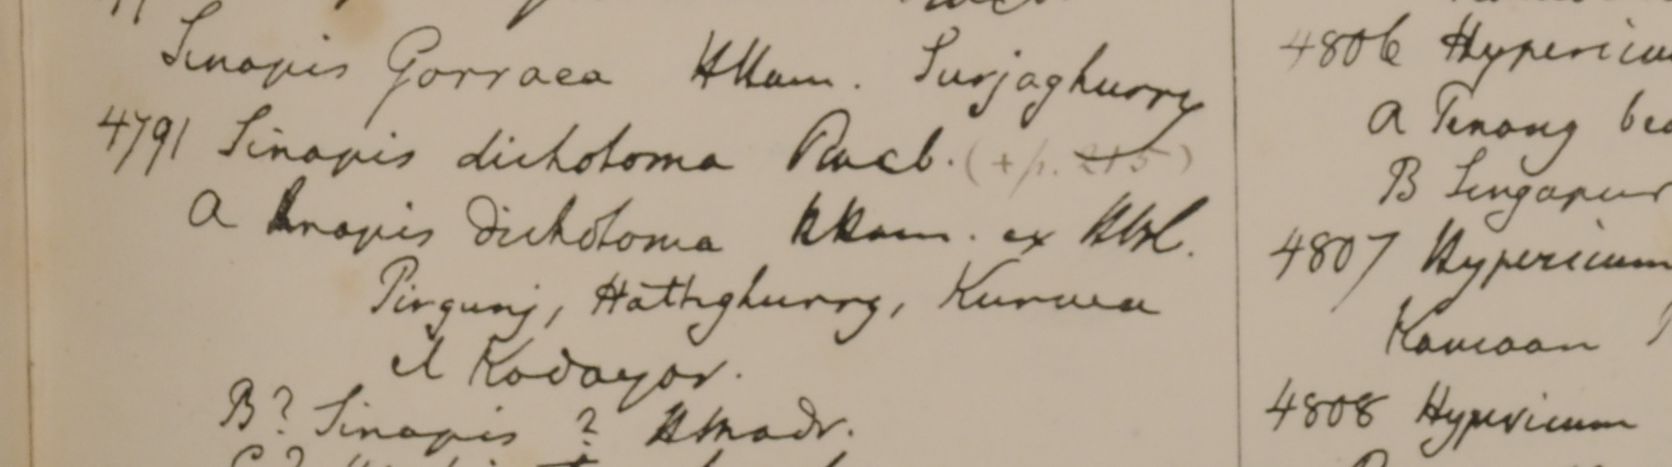 Sinapis Gorraea HHam. Surjaghurry
4791 Sinapis dichotoma Roxb. (+ p. 215)
A Sinapis dichotoma HHam. ex HBL.
Pirgunj, Hathghurry, Kuruea
et Kodayor.
B? Sinapis ? HMadr.
4806 Hypericum
A Penang
B Singapur
4807 Hypericum
Kamaon
4808 Hypericum